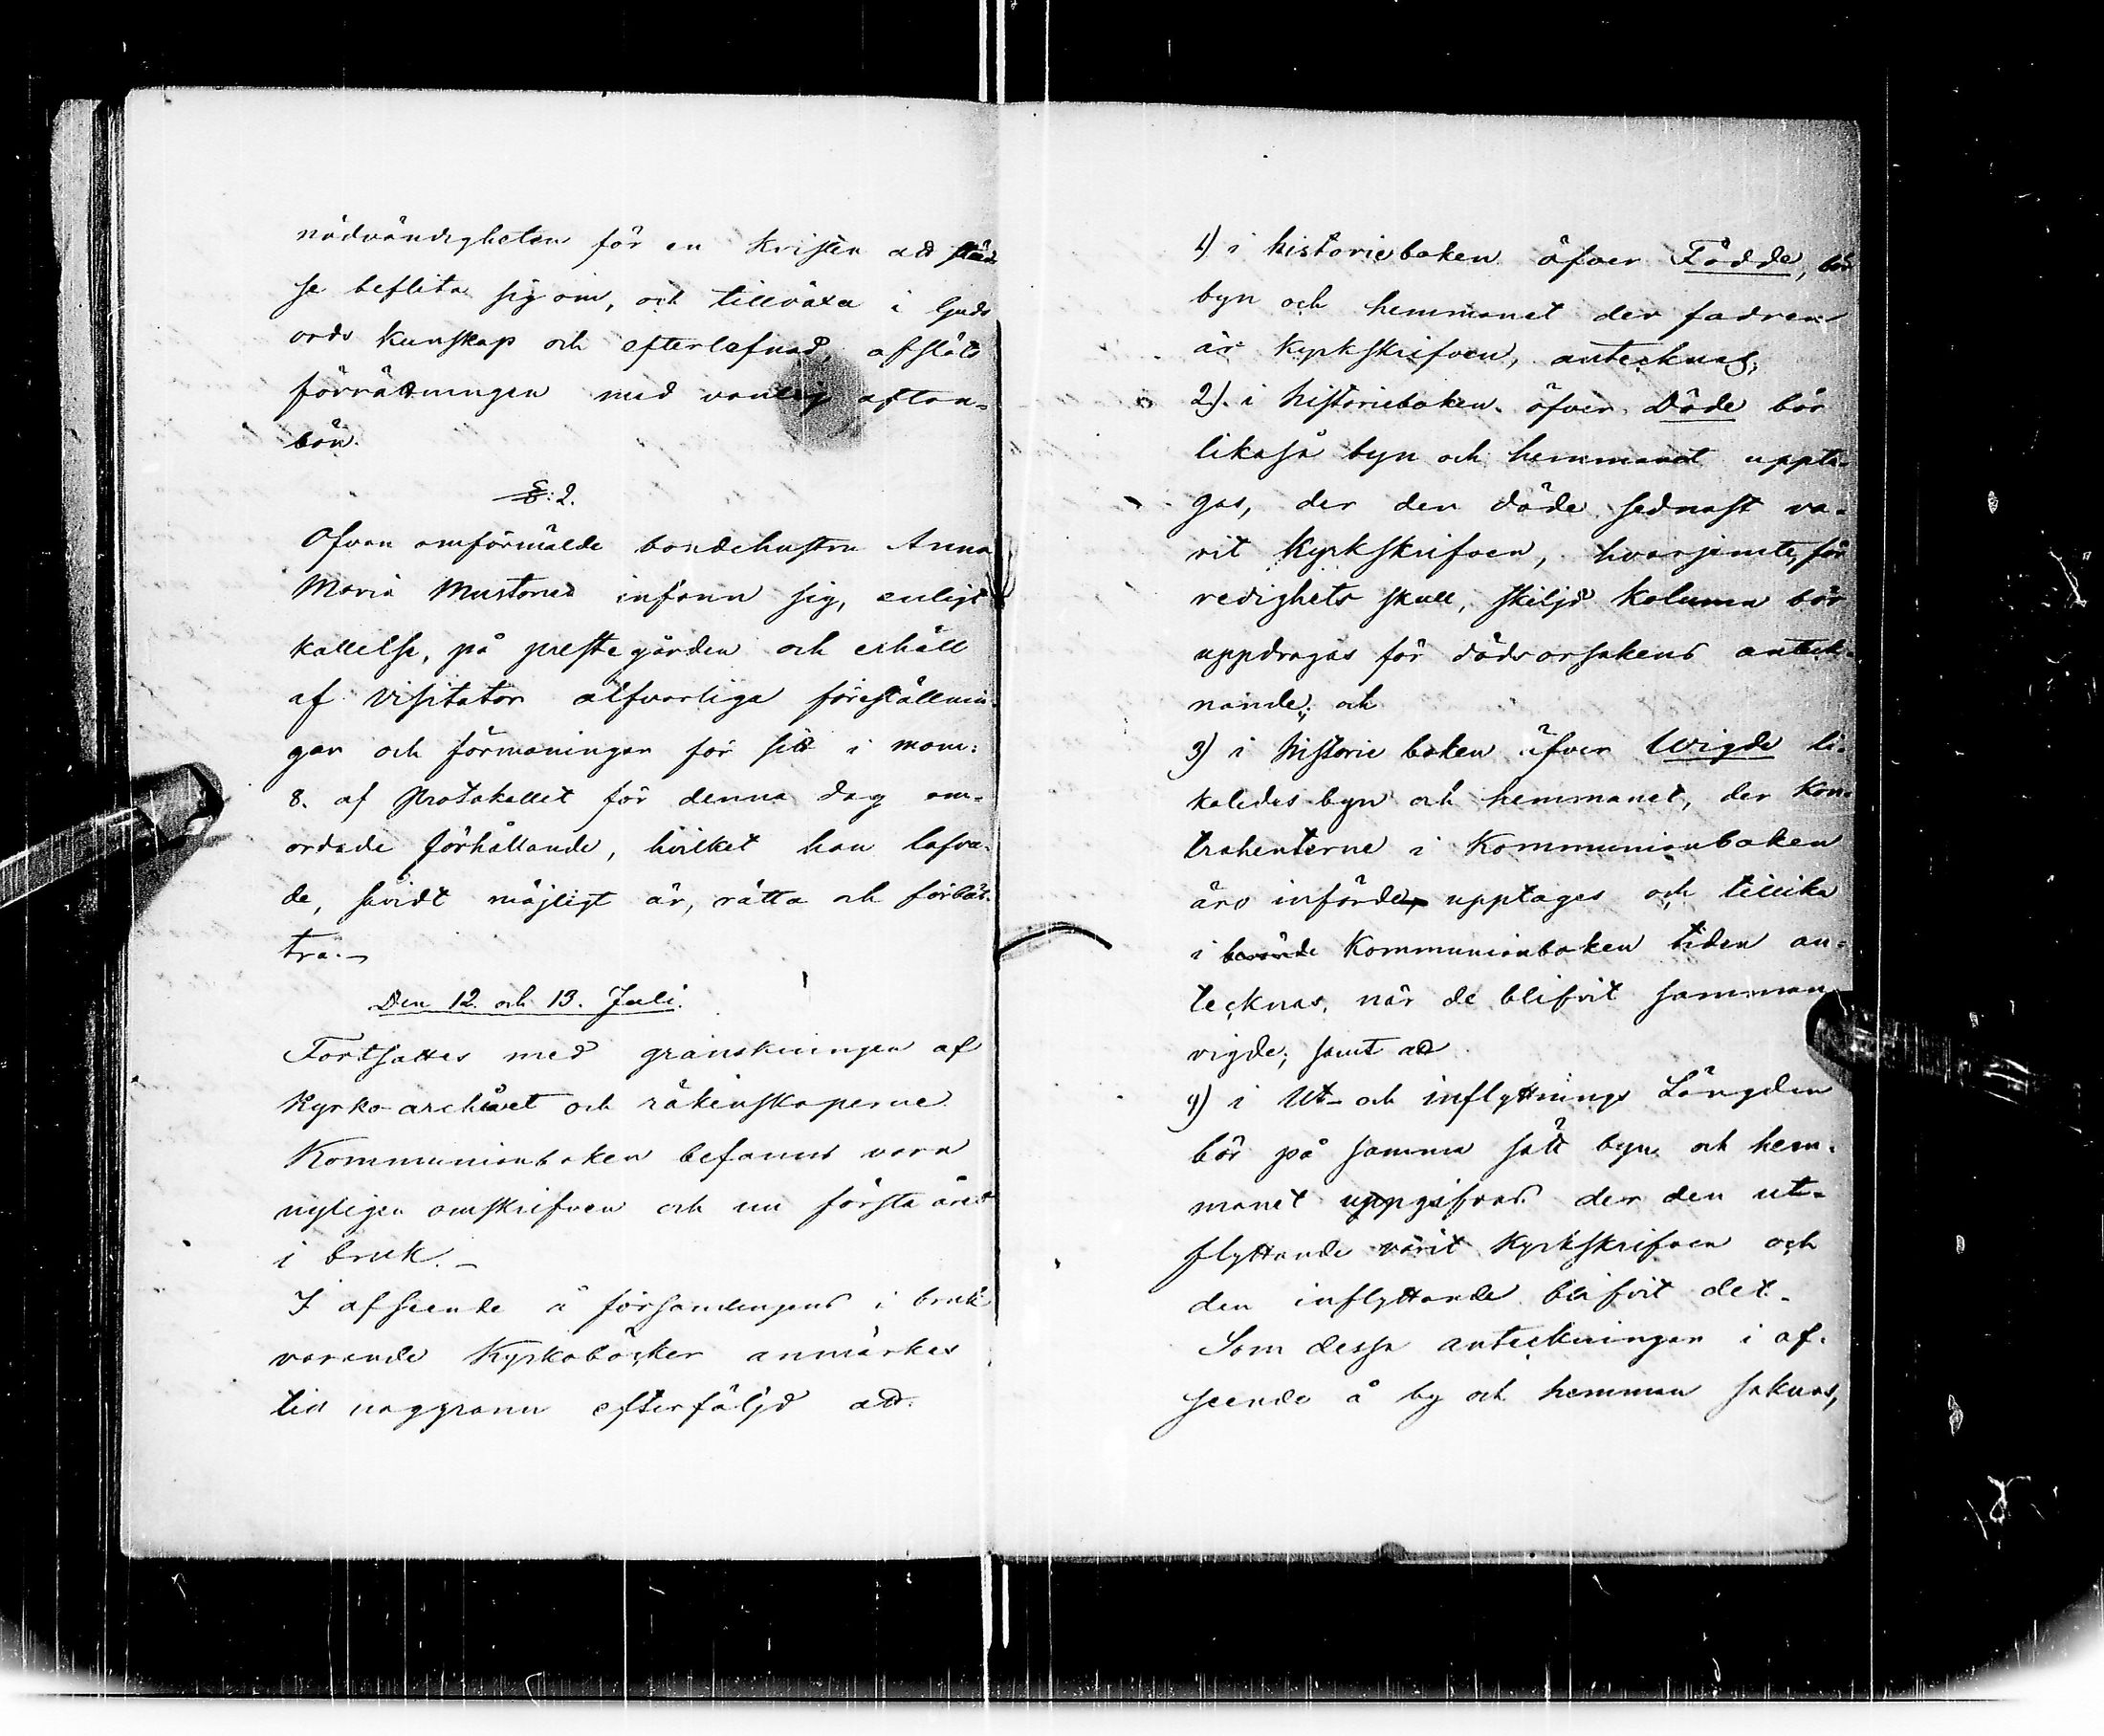 nödvändigheten för en Kristen att städ
se beflita sig om, och tillväxa i Guds
ords kunskap och efterlefnad, afslöts
förrättningen med vanlig afton-
bön.
§: 2.
Ofvan omförmälde bondehustru Anna
Maria Mustonen infann sig, enligt
kallelse, på prestegården och erhöll
af Visitator alfvarliga föreställnin-
gar och förmaningar för sitt i mom:
8. af Protokollet för denna dag om-
ordade förhållande, hvilket hon lofva-
de, såvidt möjligt är, rätta och förbät-
tra.—
Den 12. och 13. Juli.
Fortsattes med granskningen af
Kyrko-archivet och räkenskaperne.
Kommunionboken befanns vara
nyligen omskrifven och nu första året
i bruk.—
I afseende å församlingens i bruk
varande Kyrkoböcker anmärkes
till noggrann efterföljd att
1) i historieboken öfver Födde, bör
byn och hemmanet der fadren
är Kyrkskrifven, antecknas;
2). i historieboken öfver Döde bör
likaså byn och hemmanet uppta-
gas, der den döde sednast va-
rit Kyrkskrifven, hvarjemte, för
redighets skull, skiljd kolumn bör
uppdragas för dödsorsakens anteck-
nande; och
3) i historie boken öfver Wigde li-
kaledes byn och hemmanet, der Kon-
trahenterne i Kommunionboken
äro införde, upptages och tillika
i Kommunionboken tiden an-
tecknas, när de blifvit samman-
vigde; samt att
4) i Ut- och inflyttnings Längden
bör på samma sätt byn och hem-
manet uppgifvas der den ut-
flyttande varit Kyrkskrifven och
den inflyttande blifvit det.
Som dessa anteckningar i af-
seende å by och hemman saknas,